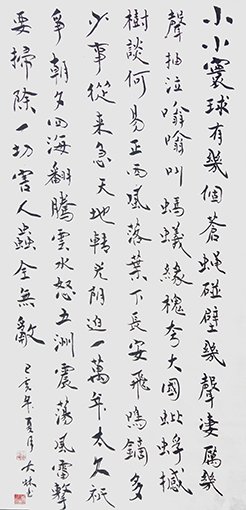 小小寰球有幾個蒼蠅碰壁幾聲淒厲幾
聲抽泣嗡嗡叫螞蟻緣槐夸大國蚍蜉撼
樹談何易正西風落葉下長安飛鳴鏑多
少事從來急天地轉光陰迫一萬年太久衹
爭朝夕四海翻騰雲水怒五洲震蕩風雷擊
要掃除一切害人蟲全無敵
己亥年夏月大林书